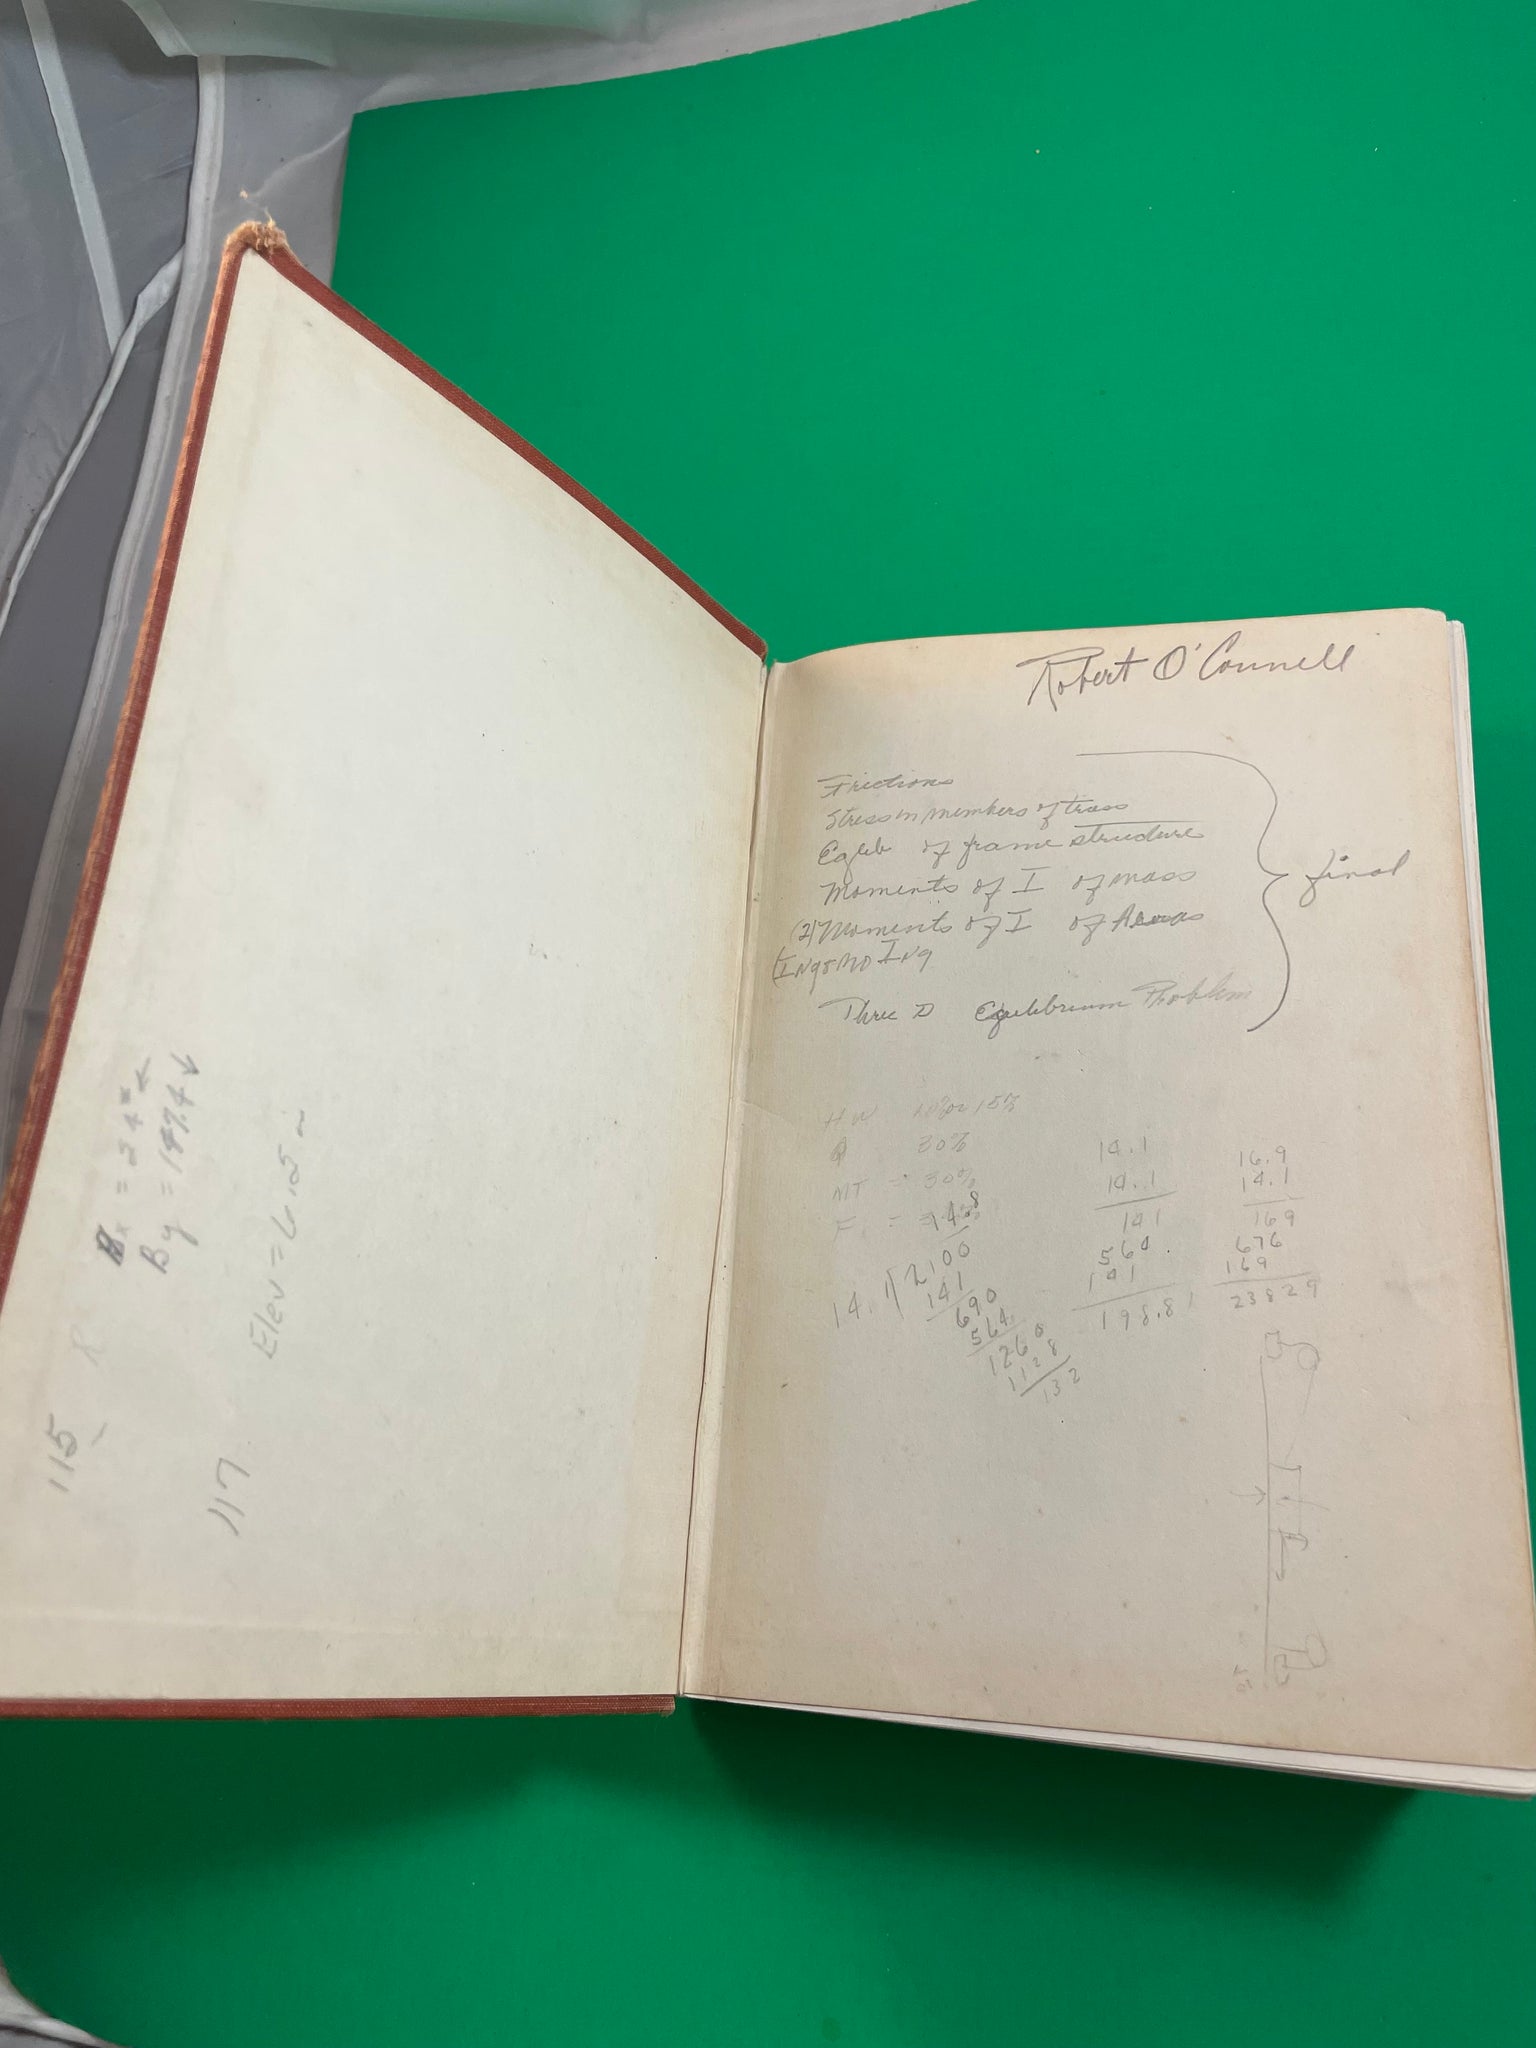 Bx = 24# ←
By = 147.4 ↓
115
Elev = 6.25
117
Robert O'Connell
Frictions
Stress in members of trass
Equlb of frame structure
Moments of I of mass
(2) Moments of I of Areas
Three D Equilibrium Problem
final
HW 10% or 15%
Q 30%
MT = 30%
F =
14.8
14.1 2100
141
690
564
1260
1128
132
14.1
14.1
141
560
141
198.81
16.9
14.1
169
676
169
23829